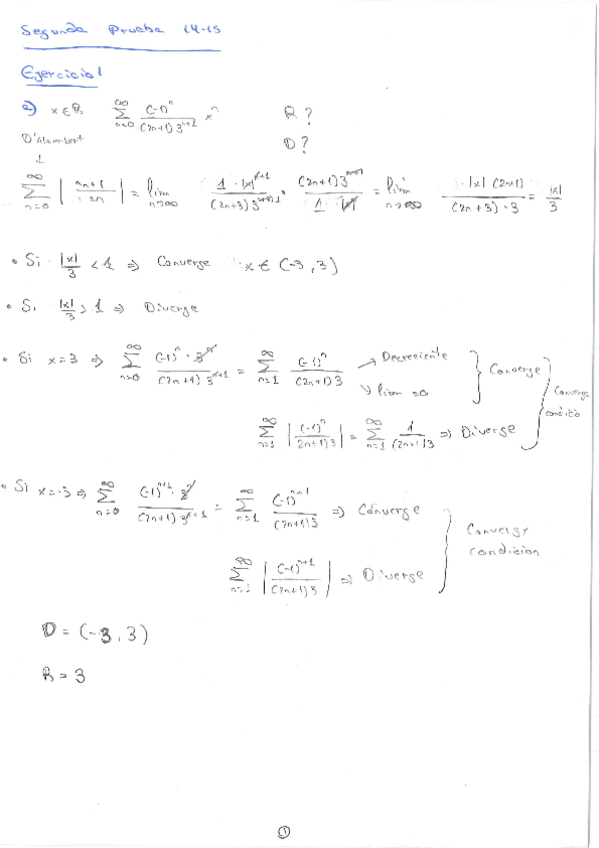 Segunda Prueba 14-15
Ejercicio 1
a) x ∈ ℝ, ∑_{n=0}^{∞} (-1)^n / ((2n+1) 3^{n+1}) x^n R?
D'Alembert D?
∑_{n=0}^{∞} | a_{n+1} / a_n | = lim_{n→∞} 1·|x|^{n+1} / ((2n+3) 3^{(n+1)+1}) · (2n+1) 3^{n+1} / (1·|x|^n) = lim_{n→∞} |x| (2n+1) / ((2n+3)·3) = |x|/3
• Si |x|/3 < 1 ⇒ Converge x ∈ (-3, 3)
• Si |x|/3 > 1 ⇒ Diverge
• Si x=3 ⇒ ∑_{n=0}^{∞} (-1)^n · 3^n / ((2n+1) 3^{n+1}) = ∑_{n=1}^{∞} (-1)^n / ((2n+1)3) → Decreciente
↘ lim = 0 } Converge
∑_{n=1}^{∞} | (-1)^n / (2n+1)3 | = ∑_{n=1}^{∞} 1 / ((2n+1)3 ⇒ Diverge } Converge condicio
• Si x=-3 ⇒ ∑_{n=0}^{∞} (-1)^{n+1} · 3^n / ((2n+1) 3^{n+1}) = ∑_{n=1}^{∞} (-1)^{n+1} / ((2n+1)3) ⇒ Converge
∑_{n=1}^{∞} | (-1)^{n+1} / ((2n+1)3) | ⇒ Diverge } Converge condicion
D = (-3, 3)
R = 3
①